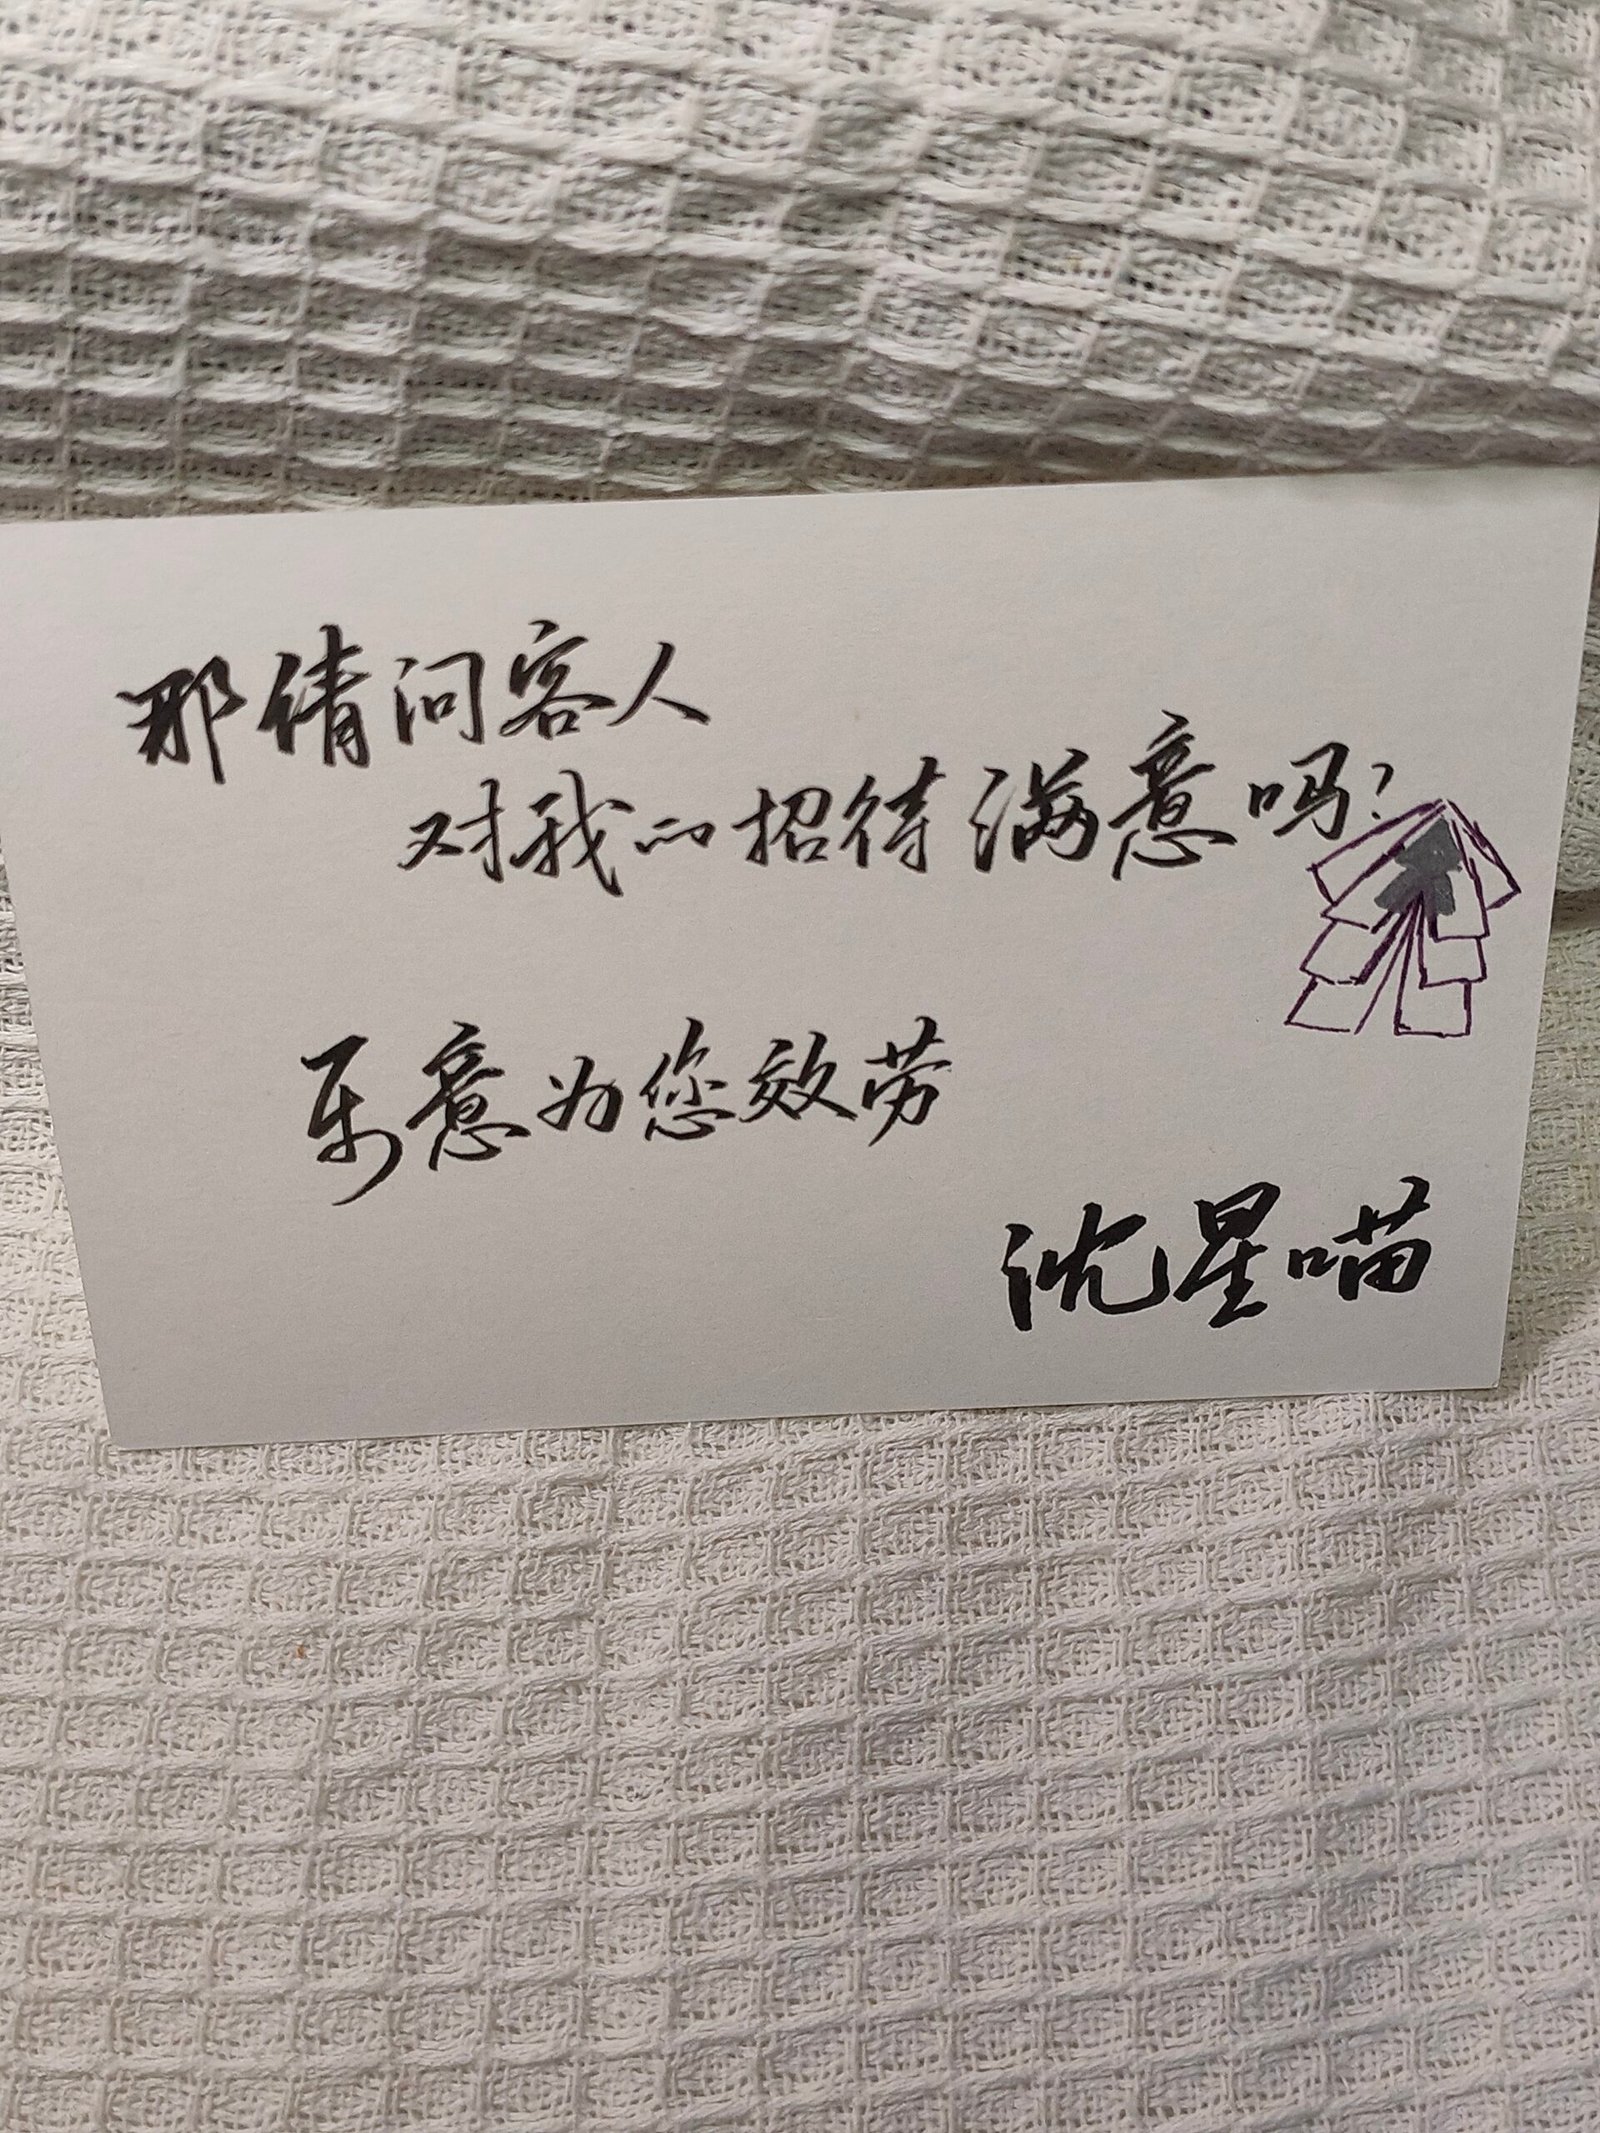 那倩问客人
对我的招待满意吗?
乐意为您效劳
沈星喵